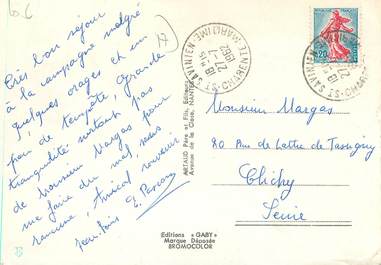 Très bon séjour
à la campagne malgré
quelques orages et un
peu de tempête, grande
tranquillité surtout pas
de Monsieur Margas pour
me faire du mal, sans
rancune, Amical souvenir
Jean-Louis
ARTAUD Père et Fils, Editeurs
Avenue de la Close, NANTES
Editions « GABY »
Marque Déposée
BROMOCOLOR
CHARENTE MARITIME
1962
Monsieur Margas
80 Rue de Lattre de Tassigny
Clichy
Seine